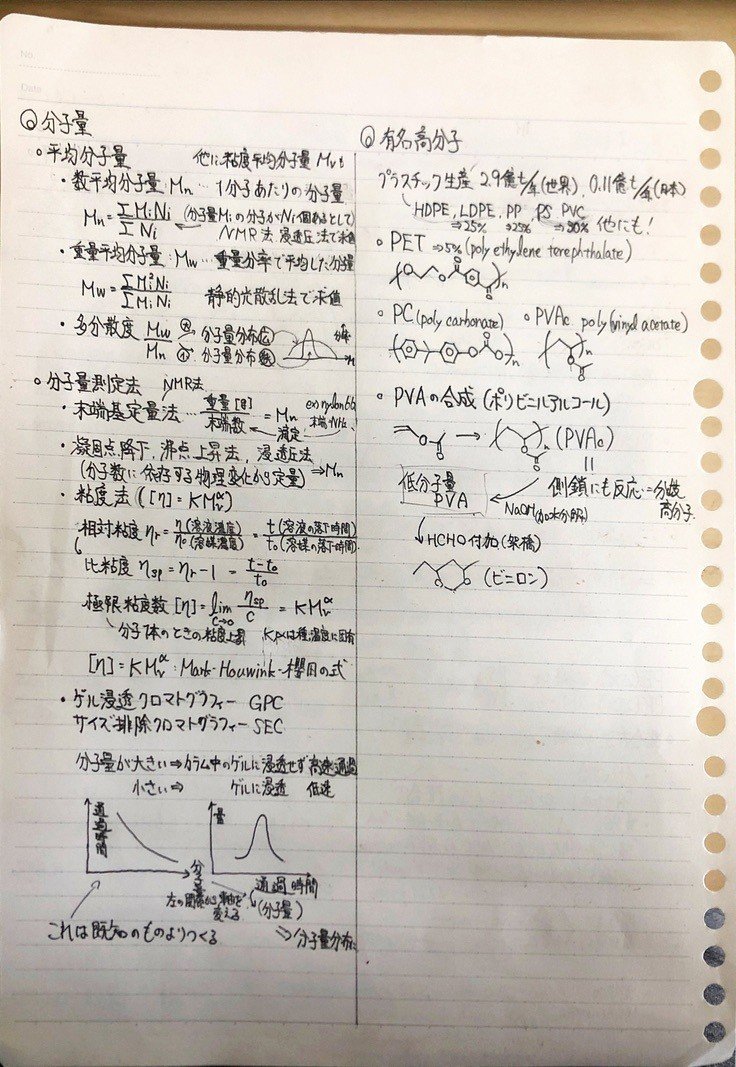 No.
Date
◎分子量
○平均分子量 他に粘度平均分子量 Mvも
・数平均分子量 Mn … 1分子あたりの分子量
Mn = ΣMiNi / ΣNi (分子量Miの分子がNi個あるとして)
NMR法、浸透圧法で求値
・重量平均分子量 Mw … 重量分率で平均した分子量
Mw = ΣMi²Ni / ΣMiNi 静的光散乱法で求値
・多分散度 Mw/Mn 大→分子量分布広
小→分子量分布狭
○分子量測定法 NMR法
・末端基定量法 … 重量[g] / 末端数 = Mn ex) nylon 66
滴定 末端-NH₂
・凝固点降下、沸点上昇法、浸透圧法
(分子数に依存する物理変化から定量) ⇒Mn
・粘度法 ([η] = KMvᵅ)
相対粘度 ηr = η(溶液濃度) / η₀(溶媒濃度) = t(溶液の落下時間) / t₀(溶媒の落下時間)
比粘度 ηsp = ηr - 1 = t-t₀ / t₀
極限粘度数 [η] = lim c→0 ηsp / c = KMvᵅ
分子体のときの粘度上昇 K,αは種、温度に固有
[η] = KMvᵅ : Mark-Houwink-櫻田の式
・ゲル浸透クロマトグラフィー GPC
サイズ排除クロマトグラフィー SEC
分子量が大きい ⇒ カラム中のゲルに浸透せず高速通過
小さい ⇒ ゲルに浸透 低速
通過時間
分子量
量
通過時間
(分子量)
左の関係から軸を変える
これは既知のものよりつくる
⇒分子量分布に
◎有名高分子
プラスチック生産 2.9億t/年(世界)、0.11億t/年(日本)
HDPE, LDPE, PP, PS, PVC 他にも!
⇒25% ⇒25% ⇒30%
○PET ⇒5% (poly ethylene terephthalate)
○PC (poly carbonate) ○PVAc poly(vinyl acetate)
○PVAの合成 (ポリビニルアルコール)
(PVAc)
低分子量 PVA
側鎖にも反応…分岐高分子
NaOH(加水分解)
↓HCHO付加(架橋)
(ビニロン)